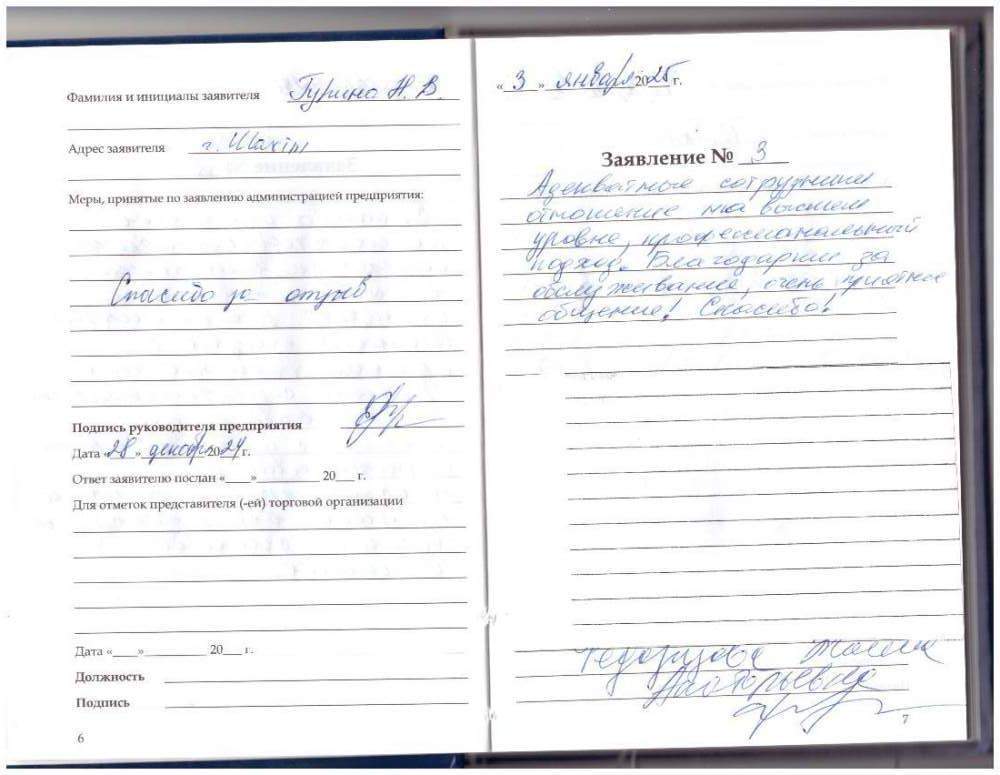 Фамилия и инициалы заявителя Гурина Н. В.
Адрес заявителя г. Шахты
Меры, принятые по заявлению администрацией предприятия:
Спасибо за отзыв
Подпись руководителя предприятия
Дата «28» декабря 2024 г.
Ответ заявителю послан «____»__________ 20___ г.
Для отметок представителя (-ей) торговой организации
Дата «____»__________ 20___ г.
Должность
Подпись
6
«3» января 2025 г.
Заявление № 3
Адекватные сотрудники
отношение на высшем
уровне, профессиональный
подход. Благодарим за
обслуживание, очень приятное
общение! Спасибо!
7